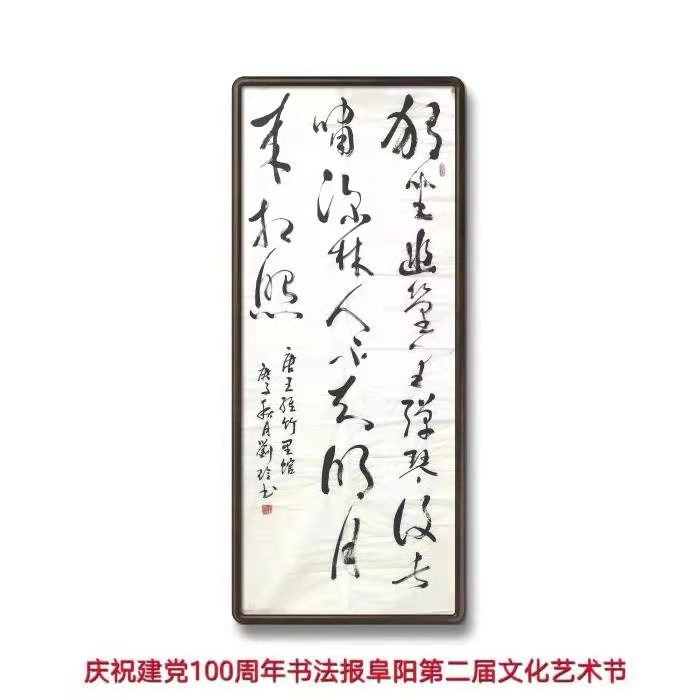 独坐幽篁里彈琴復长
嘯深林人不知明月
来相照
唐王維竹里館
庚子秋月劉玲书
庆祝建党100周年书法报阜阳第二届文化艺术节